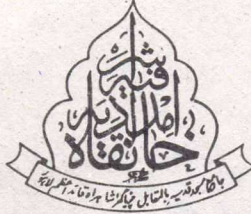 خانقاہ
امدادیہ
اشرفیہ
جامع مسجد قدسیہ بالمقابل چڑیا گھر شاہراہ قائد اعظم لاہور